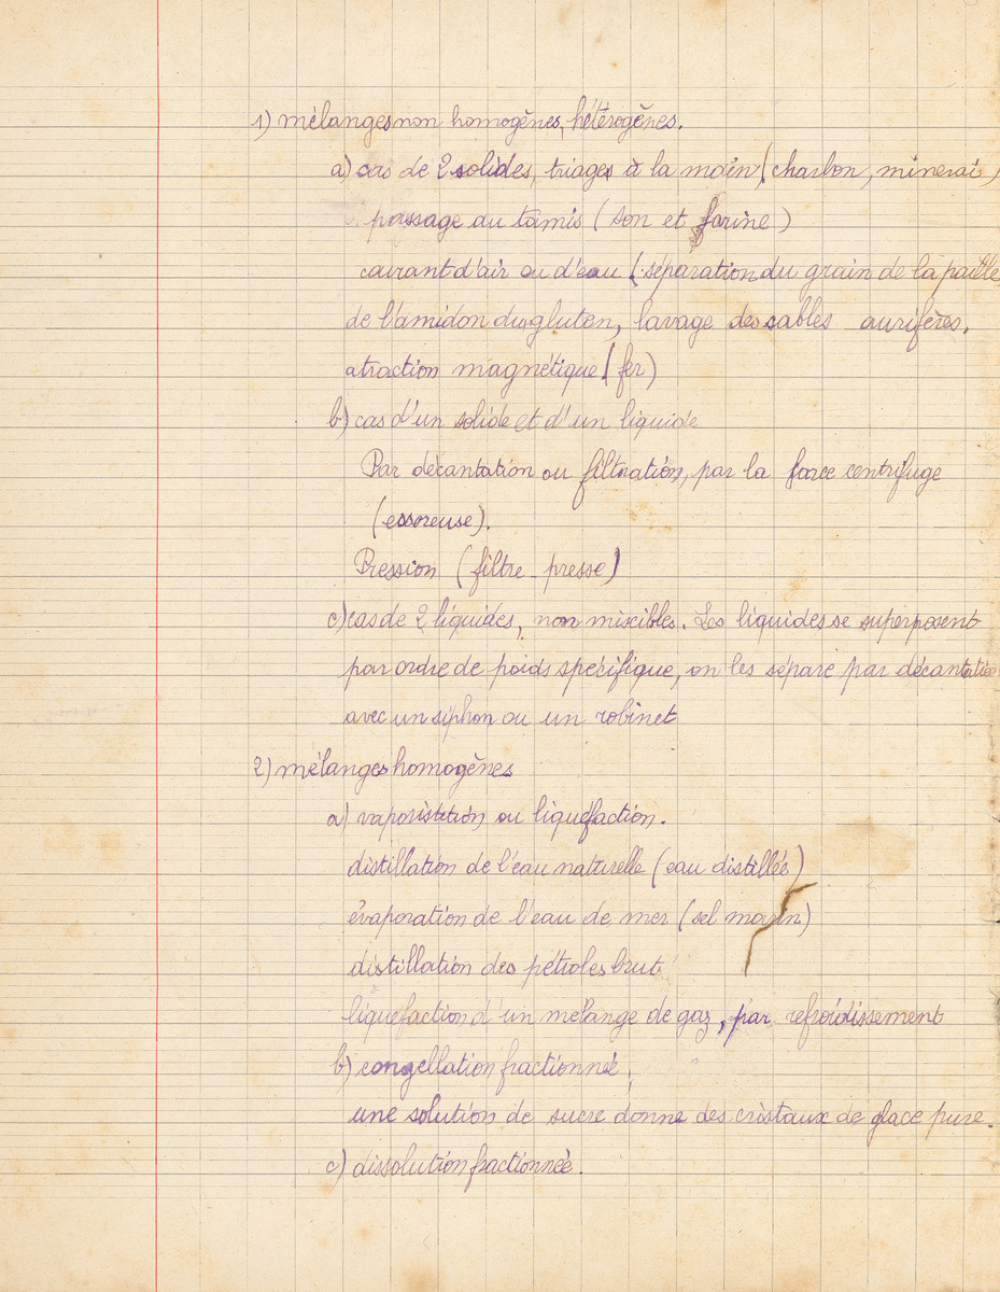 1) mélanges non homogènes, hétérogènes.
a) cas de 2 solides, triages à la main (charbon, minerai)
passage au tamis (son et farine)
courant d'air ou d'eau (séparation du grain de la paille
de l'amidon du gluten, lavage des sables aurifères.
atraction magnétique (fer)
b) cas d'un solide et d'un liquide
Par décantation ou filtration, par la force centrifuge
(essoreuse).
Pression (filtre-presse)
c) cas de 2 liquides, non miscibles. Les liquides se superposent
par ordre de poids spécifique, on les sépare par décantation
avec un siphon ou un robinet
2) mélanges homogènes
a) ou liquéfaction.
distillation de l'eau naturelle (eau distillée)
évaporation de l'eau de mer (sel marin)
distillation des pétroles brut
liquefaction d'un mélange de gaz, par refroidissement
b) congellation fractionnée,
une solution de sucre donne des cristaux de glace pure.
c) dissolution fractionnée.